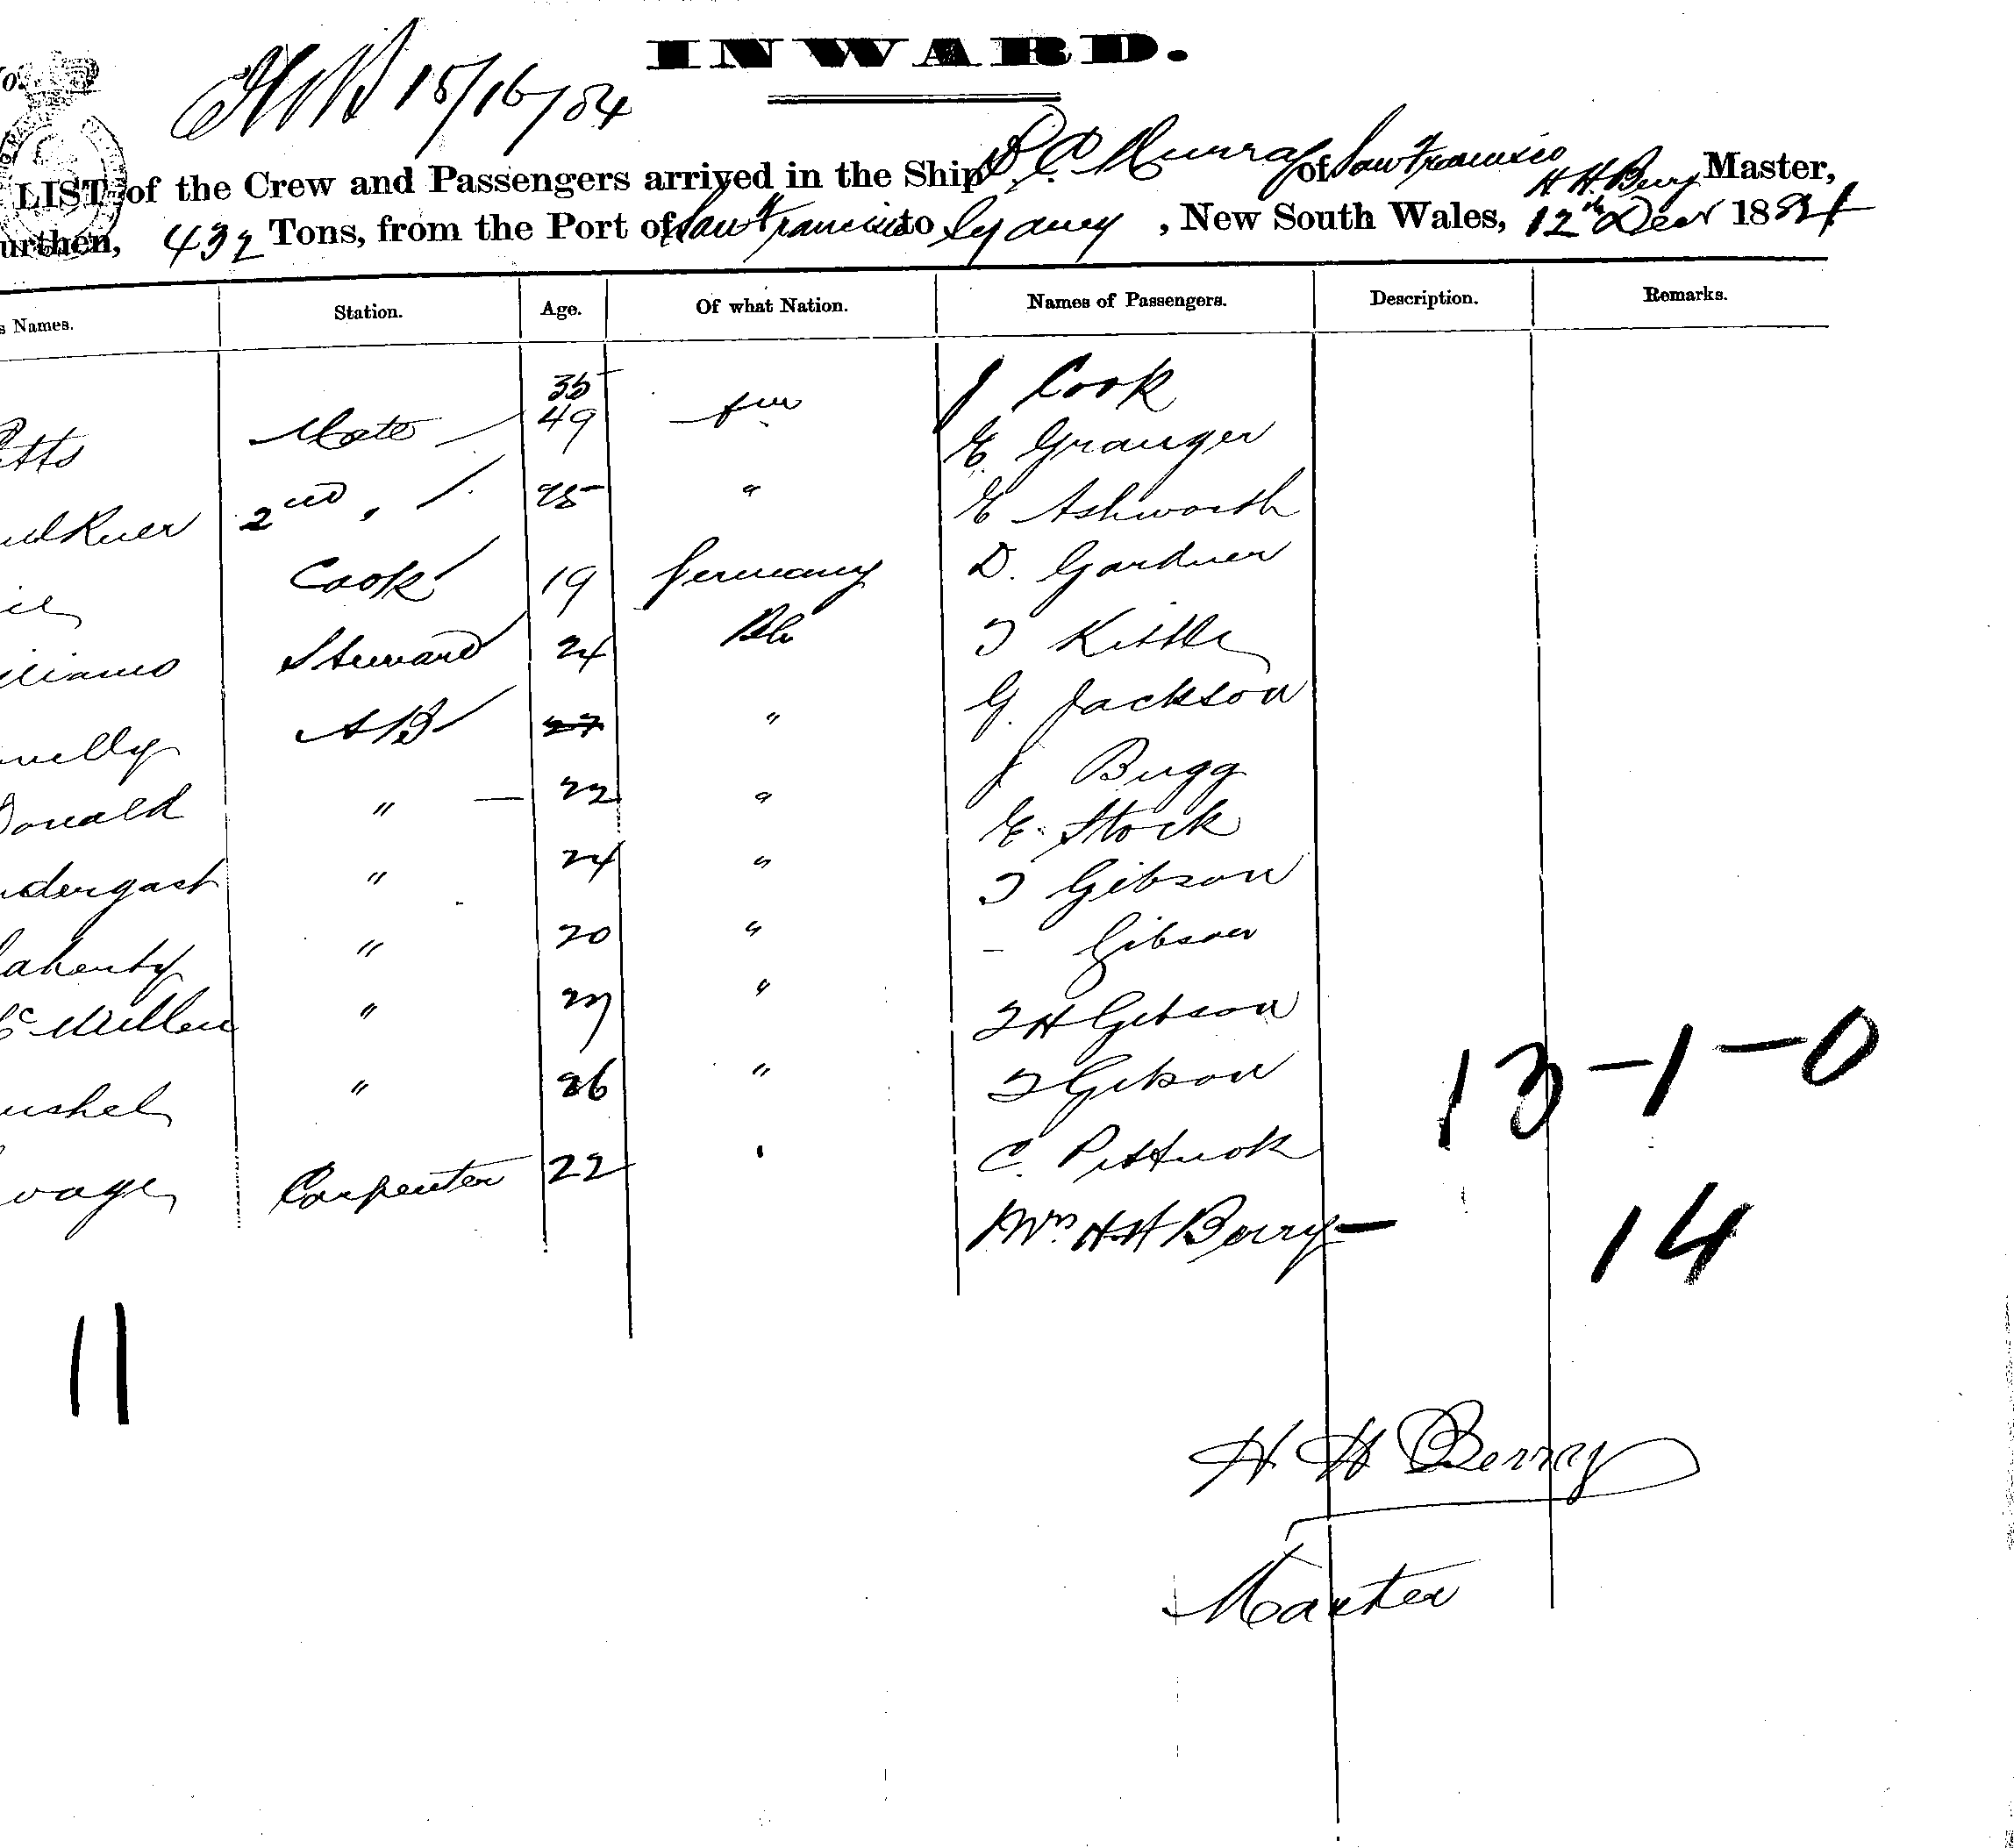 INWARD.
15/16/84
LIST of the Crew and Passengers arrived in the Ship D. C. Murray of San Francisco H. H. Berry Master,
urthen, 432 Tons, from the Port of San Francisco to Sydney, New South Wales, 12th Decr 1884
s Names. Station. Age. Of what Nation. Names of Passengers. Description. Remarks.
35 J Cook
tts Mate 49 Am E. Granger
ulkner 2nd " 25 " E Ashworth
Cook 19 Germany D. Gardner
lliams Steward 24 Br T Kittle
nelly AB 27 " G. Jackson
Donald " 22 " J Bugg
E. Stock
ndergast " 24 " T Gibson
aherty " 20 " - Gibson
Mc Mullen " 27 " T H Gibson
ushel " 26 " T Gibson
13-1-0
vage Carpenter 22 " C. Pittnok
Mrs H H Berry - 14
11
H H Berry
Master